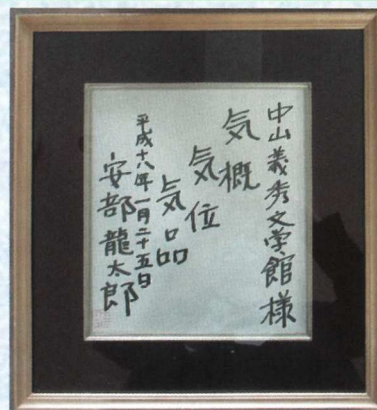 中山義秀文学館様
気概
気位
気品
平成十八年一月二十五日
安部龍太郎